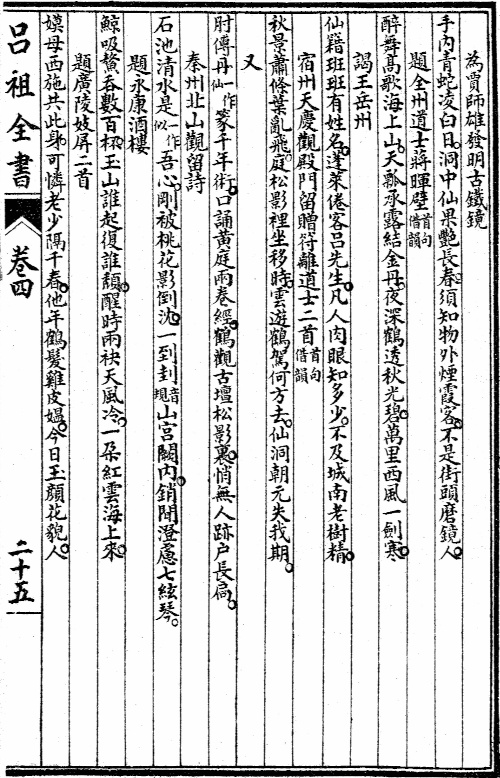 為賈師雄發明古鐵鏡
手內青蛇凌白日。洞中仙果艷長春。須知物外煙霞客。不是街頭磨鏡人。
題全州道士蔣暉壁首句借韻
醉舞高歌海上山。天瓢承露結金丹。夜深鶴透秋光碧。萬里西風一劍寒。
謁王岳州
仙籍班班有姓名。蓬萊倦客呂先生。凡人肉眼知多少。不及城南老樹精。
宿州天慶觀殿門留贈符離道士二首首句借韻
秋景蕭條葉亂飛。庭松影裡坐移時。雲遊鶴駕何方去。仙洞朝元失我期。
又
肘傳丹一作仙篆千年術。口誦黃庭兩卷經。鶴觀古壇松影裏。悄無人跡戶長扃。
秦州北山觀留詩
石池清水是一作似吾心。剛被桃花影倒沈。一到封音規山宮闕內。銷閒澄慮七絃琴。
題永康酒樓
鯨吸鰲吞數百杯。玉山誰起復誰頹。醒時兩袂天風冷。一朵紅雲海上來。
題廣陵妓屏二首
嫫母西施共此身。可憐老少隔千春。他年鶴髮雞皮媼。今日玉顏花貌人。
呂祖全書 卷四 二十五